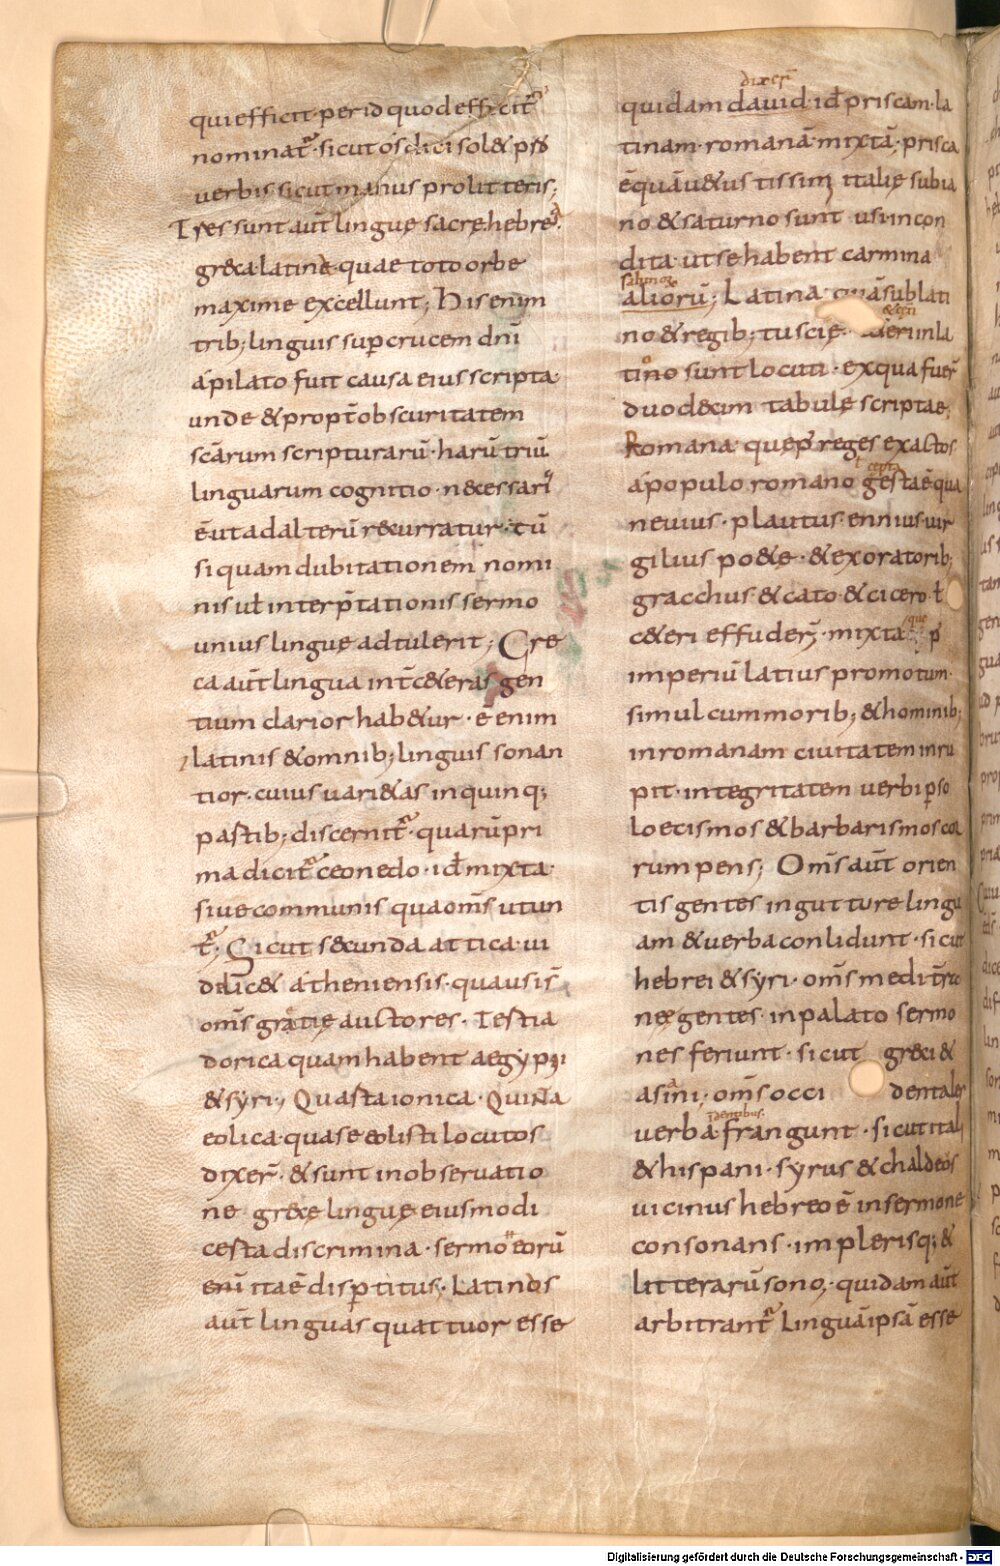 qui efficit· per id quod efficit̄
nominat̄· sicut ós dici sol& pro
uerbis sicut manus pro litteris;
Tres sunt aut̄ linguę sacrę hebrea·
gręca latina quae toto orbe
maxime excellunt; His enim
trib; linguis sup crucem dn̄i
á pilato fuit causa eius scripta
unde & propt̄ obscuritatem
scārum scripturarū· harū triū
linguarum cognitio· necessaria
ē ut ad alterū recurratur· tū
siquam dubitationem nomi
nis ul̄ interp̄tationis sermo
unius linguę adtulerit; Gre
ca aūt lingua int̄ c&eras gen
tium clarior hab&ur· ē enim
latinis & omnib; linguis sonan
tior· cuius uari&as in quinq;
partib; discernit̄· quarū pri
ma dicit̄ ceonedo· id ÷ mixta·
siue communis qua om̄s utun
t̄; Sicut secunda attica· ui
delic& átheniensis· qua usi s̄
om̄s gratię auctores· Tertia
dorica quam habent aegyptii
& syri; Quarta ionica· Quinta
eolica· qua se eolisti locutos
dixer̄· & sunt in observatio
ne gręcę linguę eiusmodi
certa discrimina· sermo eorū
enī ita ē dispertitus; Latinas
aūt linguas quattuor esse
dixer̄
quidam dauid· id ÷ priscam· la
tinam· romanā· mixtā· prisca
ē quā u&ustissimi italię sub ia
no & saturno sunt usi incon
dita· ut se habent carmina
saliorū
aliorū; Latina· quā sub lati
& ceteri
no & regib; tuscię· ceteri in la
tio sunt locuti· ex qua fuer̄
duodecim tabulę scriptae;
Romana· quę p̄ reges exactos
t̄ cepta
á populo romano gesta ē qua
neuius· plautus· ennius· uir
gilius po&ę· & ex oratorib;
gracchus & cato & cicero· ul̄
c&eri effuder̄· mixta que p̄
imperiū latius promotum·
simul cum morib; & hominib;
in romanam ciuitatem inru
pit· integritatem uerbi p so
loecismos & barbarismos cor
rumpens; Om̄s aūt orien
tis gentes in gutture lingu
am & uerba conlidunt· sicut
hebrei & syri· om̄s medit̄ra
neę gentes in palato sermo
nes feriunt· sicut greci &
asiani; om̄s occi dentales
dentibus
uerba frangunt· sicut itali
& hispani· syrus & chaldeos
uicinus hebreo ē in sermone
consonans· in plerisq; &
litterarū sono; quidam aūt
arbitrant̄ linguā ipsā esse
Digitalisierung gefördert durch die Deutsche Forschungsgemeinschaft - DFG